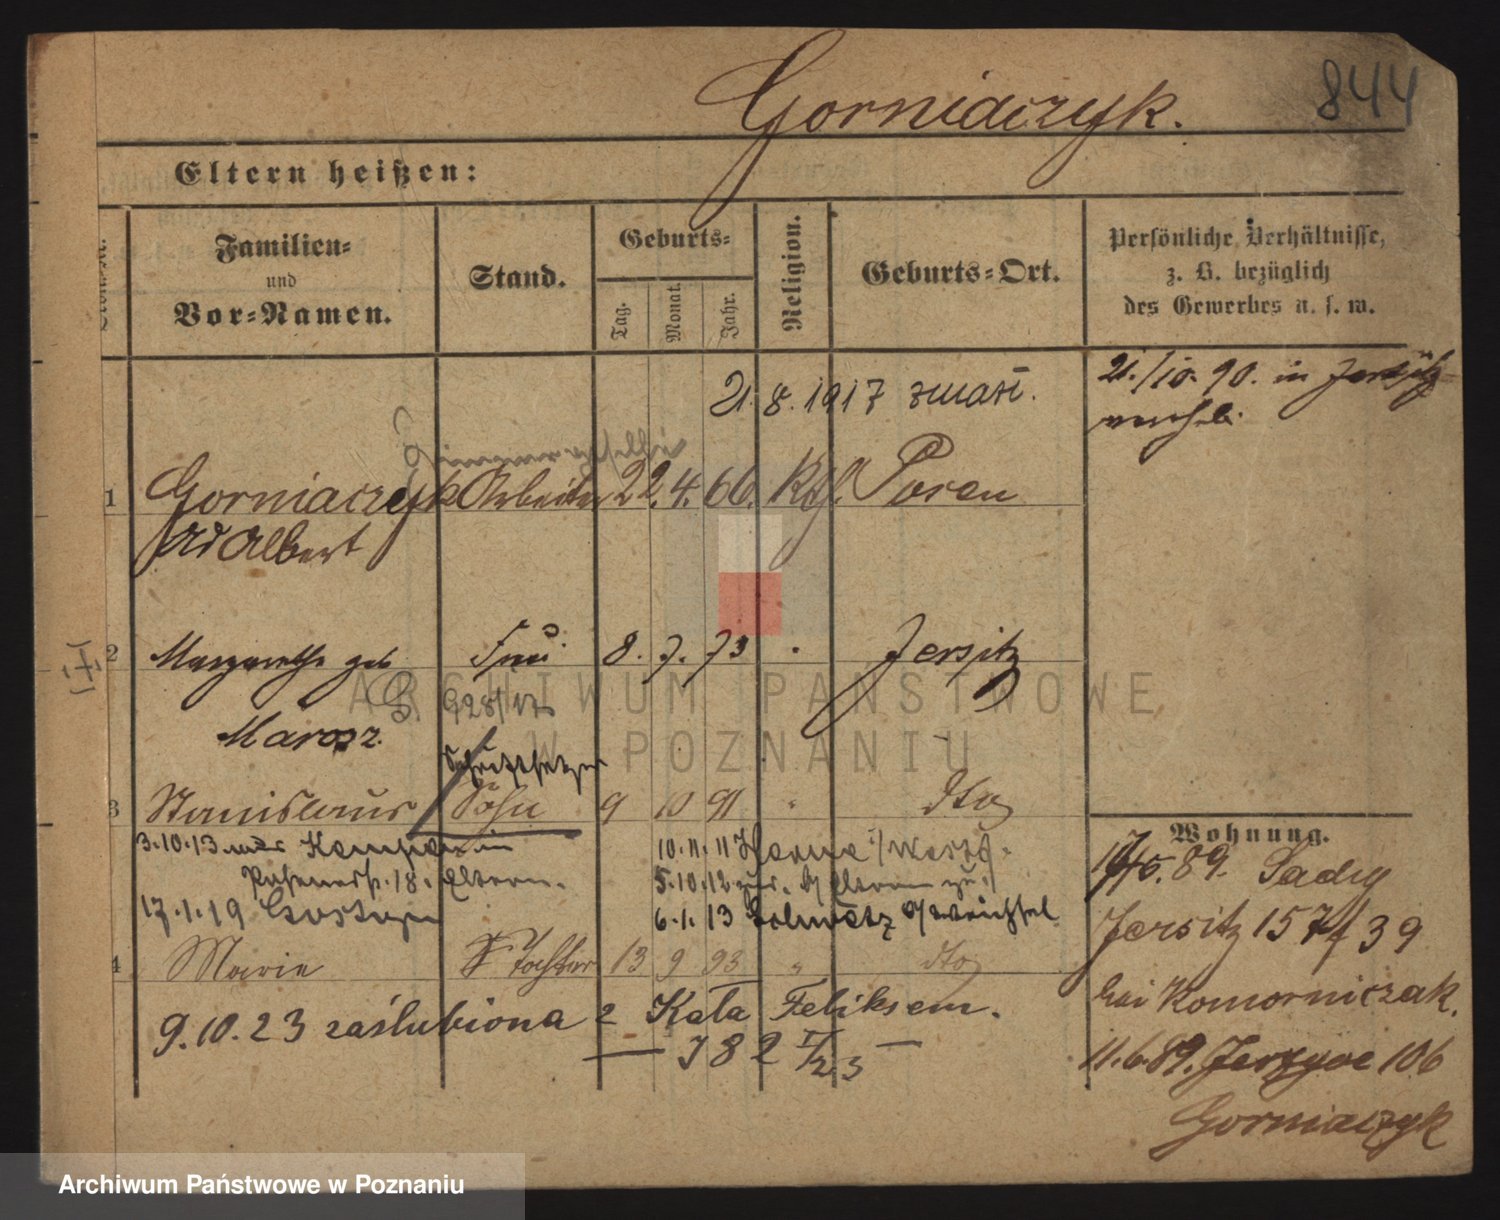 Gorniaczyk.
844
Eltern heißen:
Familien-
und
Vor-Namen.
Stand.
Geburts-
Tag.
Monat.
Jahr.
Religion.
Geburts-Ort.
Persönliche Verhältnisse,
z. B. bezüglich
des Gewerbes u. s. w.
21. 8. 1917 zmarł.
21./10. 90. in Jersitz
verehel.
1 Gorniaczyk Arbeiter 22. 4. 66. Kth. Posen
Adalbert
2 Margarethe geb Frau 8. 7. 73 Jersitz
928/17
Marosz
Schriftsetzer
3 Stanislaus Sohn 9 10 91 " dto
3.10.13
10.11.11 Herne i/Westf.
18. Eltern.
5.10.12 zur. Eltern
17.1.19 Gostyn
6.1.13 Schwetz a/Weichsel
4 Marie Tochter 13 9 93 " dto
9.10.23 zaślubiona z Kata Feliksem.
— 782 I/23 —
Wohnung.
89. Sady
Jersitz 157 39
bei Komorniczak.
11.6.89. Jerzyce 106
Gorniaczyk
ARCHIWUM PAŃSTWOWE
W POZNANIU
Archiwum Państwowe w Poznaniu